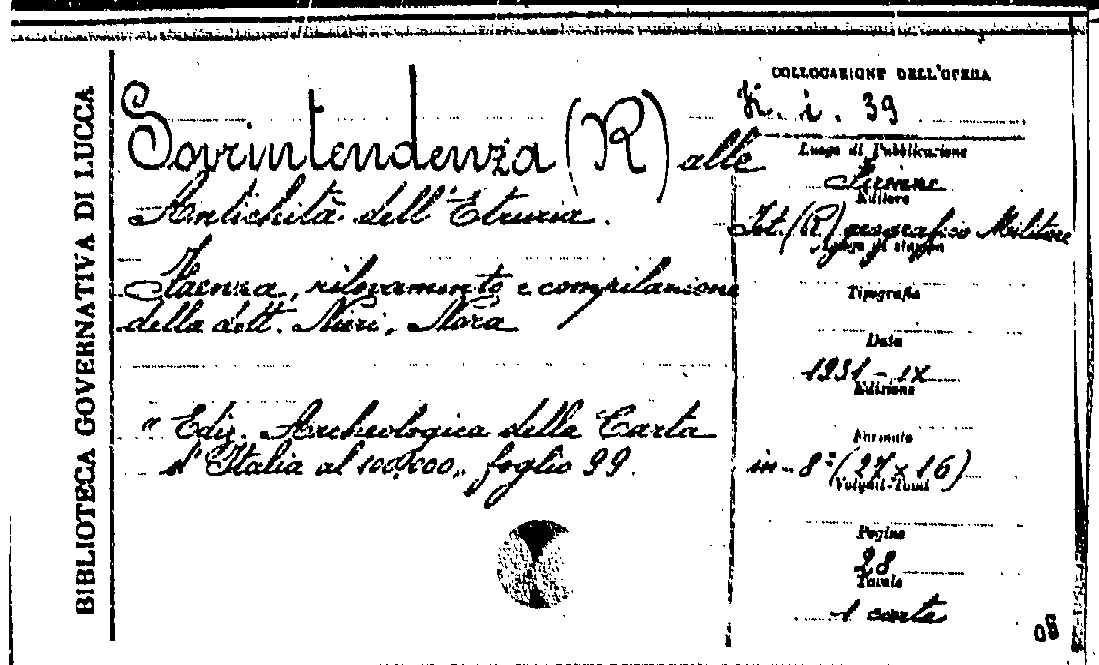 BIBLIOTECA GOVERNATIVA DI LUCCA
Sovrintendenza (R) alle
Antichità dell'Etruria.
Faenza, rilevamento e compilazione
della dott. Nieri, Nora
"Ediz. Archeologica della Carta
d'Italia al 100.000,, foglio 99.
COLLOCAZIONE DELL'OPERA
K. i. 39
Luogo di Pubblicazione
Firenze
Editore
Ist. (R) geografico Militare
Luogo di stampa
Tipografia
Data
1931 - IX
Edizione
Formato
in-8° (27 x 16)
Volumi-Tomi
Pagine
28
Tavole
1 carta